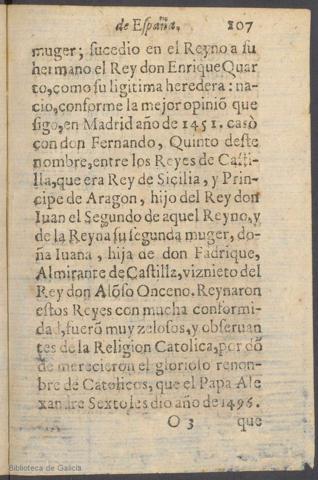 de España. 207
muger; sucedio en el Reyno a su
hermano el Rey don Enrique Quar
to, como su ligitima heredera: na-
cio, conforme la mejor opiniõ que
sigo, en Madrid año de 1451. casò
con don Fernando, Quinto deste
nombre, entre los Reyes de Casti-
lla, que era Rey de Sicilia, y Prin-
cipe de Aragon, hijo del Rey don
Iuan el Segundo de aquel Reyno, y
de la Reyna su segunda muger, do-
ña Iuana, hija de don Fadrique,
Almirante de Castilla, viznieto del
Rey don Alõso Onceno. Reynaron
estos Reyes con mucha conformi-
dad, fuerõ muy zelosos, y obseruan
tes de la Religion Catolica, por dõ
de merecieron el glorioso renon-
bre de Catolicos, que el Papa Ale
xandre Sexto les dio año de 1496.
O 3 que
Biblioteca de Galicia